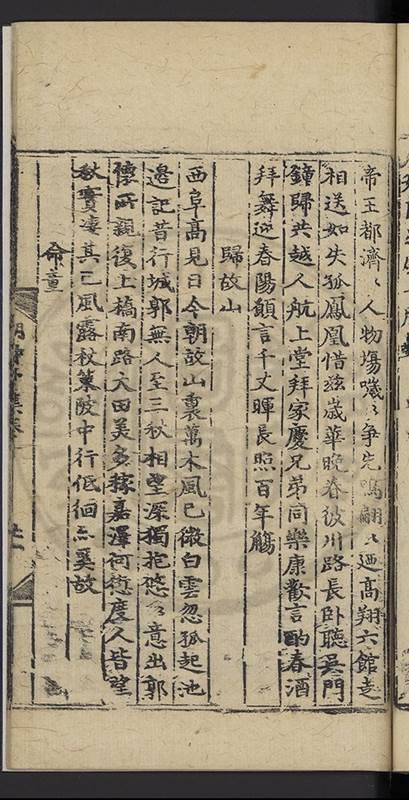 帝王都濟〻人物場嘰〻爭先鳴翩〻迺高翔六館走
相送如失孤鳳凰惜茲歲華晚眷彼川路長卧聽吳門
鐘歸共越人航上堂拜家慶兄弟同樂康歡言酌春酒
拜舞迎春陽願言千丈暉長照百年觴
歸故山
西阜高見日今朝故山裏萬木風已微白雲忽孤起池
邊記昔行城郭無人至三秋相望深獨抱悠〻意出郭
懷所親復上橋南路大田美多稼嘉澤何愆度人皆望
秋實淒其已風露杖策陂中行低徊亦奚故
命童